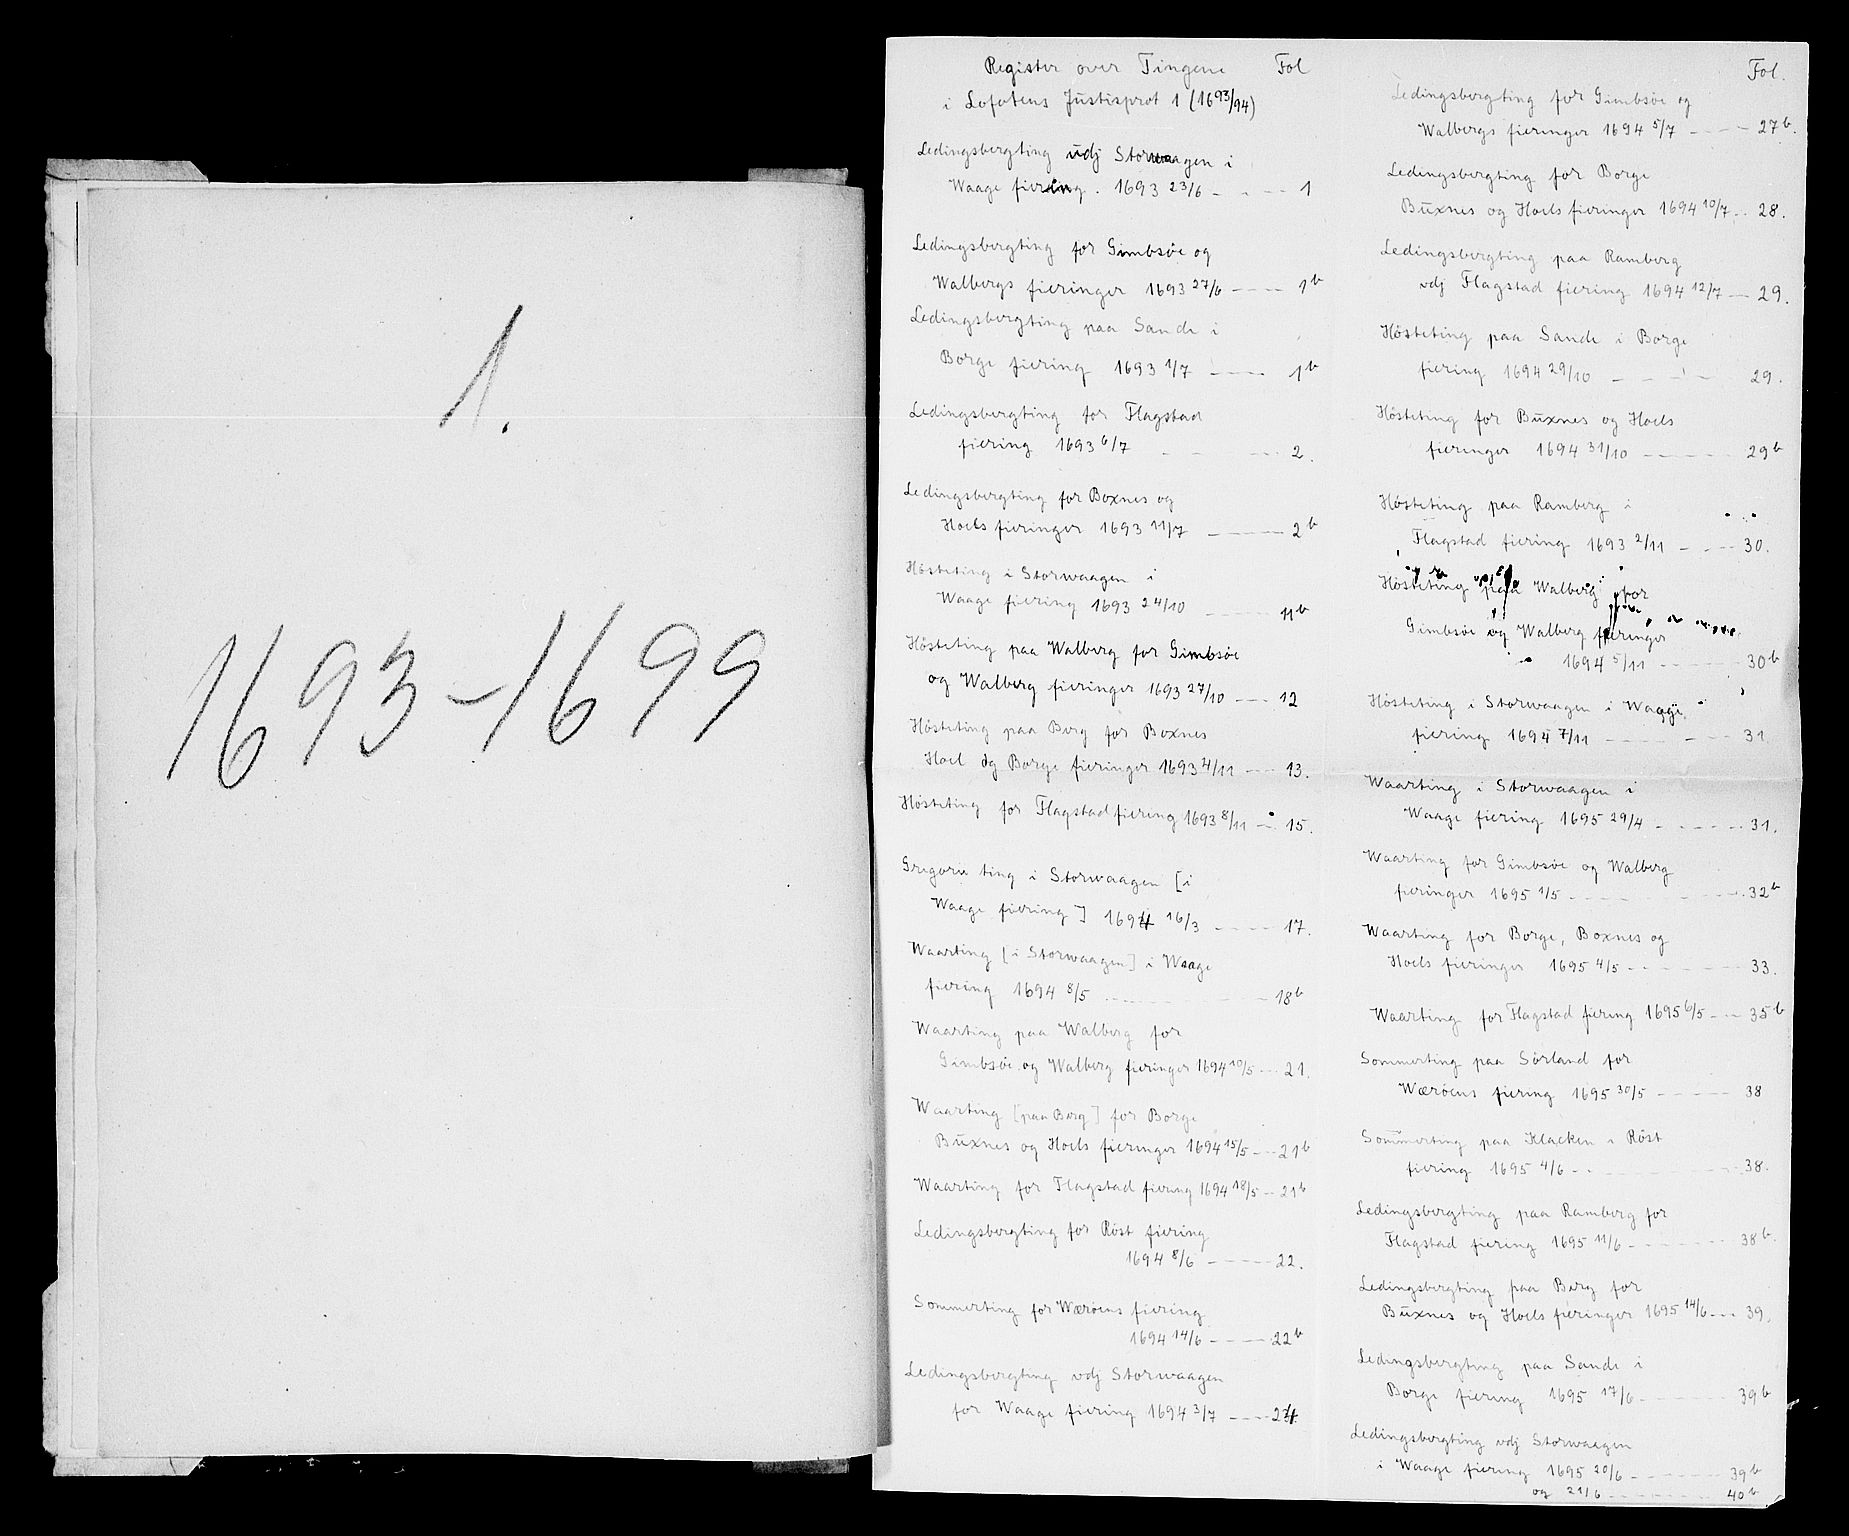 1.
1693-1699
Register over Tingene Fol
i Lofotens Justisprot 1 (1693/94)
Ledingsbergting udj Storwaagen i
Waage fiering. 1693 23/6 - - - - 1
Ledingsbergting for Gimbsöe og
Walbergs fieringer 1693 27/6 ---- 1b
Ledingsbergting paa Sande i
Borge fiering 1693 1/7 ---- 1b
Ledingsbergting for Flagstad
fiering 1693 6/7 - - --- 2.
Ledingsbergting for Boxnes og
Hoels fieringer 1693 11/7 ------ 2b
Hösteting i Storwaagen i
Waage fiering 1693 24/10 ------ 11b
Hösteting paa Walberg for Gimbsöe
og Walberg fieringer 1693 27/10 --- 12
Hösteting paa Berg for Boxnes
Hoel og Borge fieringer 1693 4/11 --- 13.
Hösteting for Flagstad fiering 1693 8/11 -- 15.
Gregorii ting i Storwaagen [i
Waage fiering] 1694 16/3 ----- 17.
Waarting [i Storwaagen] i Waage
fiering 1694 8/5 ---------- 18b
Waarting paa Walberg for
Gimbsöe og Walberg fieringer 1694 10/5 --- 21.
Waarting [paa Berg] for Borge
Buxnes og Hoels fieringer 1694 15/5 --- 21b
Waarting for Flagstad fiering 1694 18/5 -- 21b
Ledingsbergting for Röst fiering
1694 8/6 ----- 22.
Sommerting for Wæröens fiering
1694 14/6 ---- 22b
Ledingsbergting vdj Storwaagen
for Waage fiering 1694 3/7 ---- 24.
Fol.
Ledingsbergting for Gimbsöe og
Walbergs fieringer 1694 5/7 ---- 27b.
Ledingsbergting for Borge
Buxnes og Hoels fieringer 1694 10/7 -- 28.
Ledingsbergting paa Ramberg
vdj Flagstad fiering 1694 12/7 -- 29.
Hösteting paa Sande i Borge
fiering 1694 29/10 - - - - - 29.
Hösteting for Buxnes og Hoels
fieringer 1694 31/10 ------ 29b
Hösteting paa Ramberg i
Flagstad fiering 1693 2/11 ---- 30.
Hösteting paa Walberg for
Gimbsöe og Walberg fieringer
1694 5/11 ------ 30b
Hösteting i Storwaagen i Waage
fiering 1694 7/11 ------- 31
Waarting i Storwaagen i
Waage fiering 1695 29/4 ------ 31.
Waarting for Gimbsöe og Walberg
fieringer 1695 1/5 ---------- 32b
Waarting for Borge, Boxnes og
Hoels fieringer 1695 4/5 ------- 33.
Waarting for Flagstad fiering 1695 6/5 --- 35b
Sommerting paa Sörland for
Wæröens fiering 1695 30/5 ----- 38
Sommerting paa Klacken i Röst
fiering 1695 4/6 -- -------- 38.
Ledingsbergting paa Ramberg for
Flagstad fiering 1695 11/6 ------- 38b
Ledingsbergting paa Berg for
Buxnes og Hoels fieringer 1695 14/6 --- 39.
Ledingsbergting paa Sande i
Borge fiering 1695 17/6 ------ 39b
Ledingsbergting vdj Storwaagen
i Waage fiering 1695 20/6 ------- 39b
og 21/6 -------- 40b